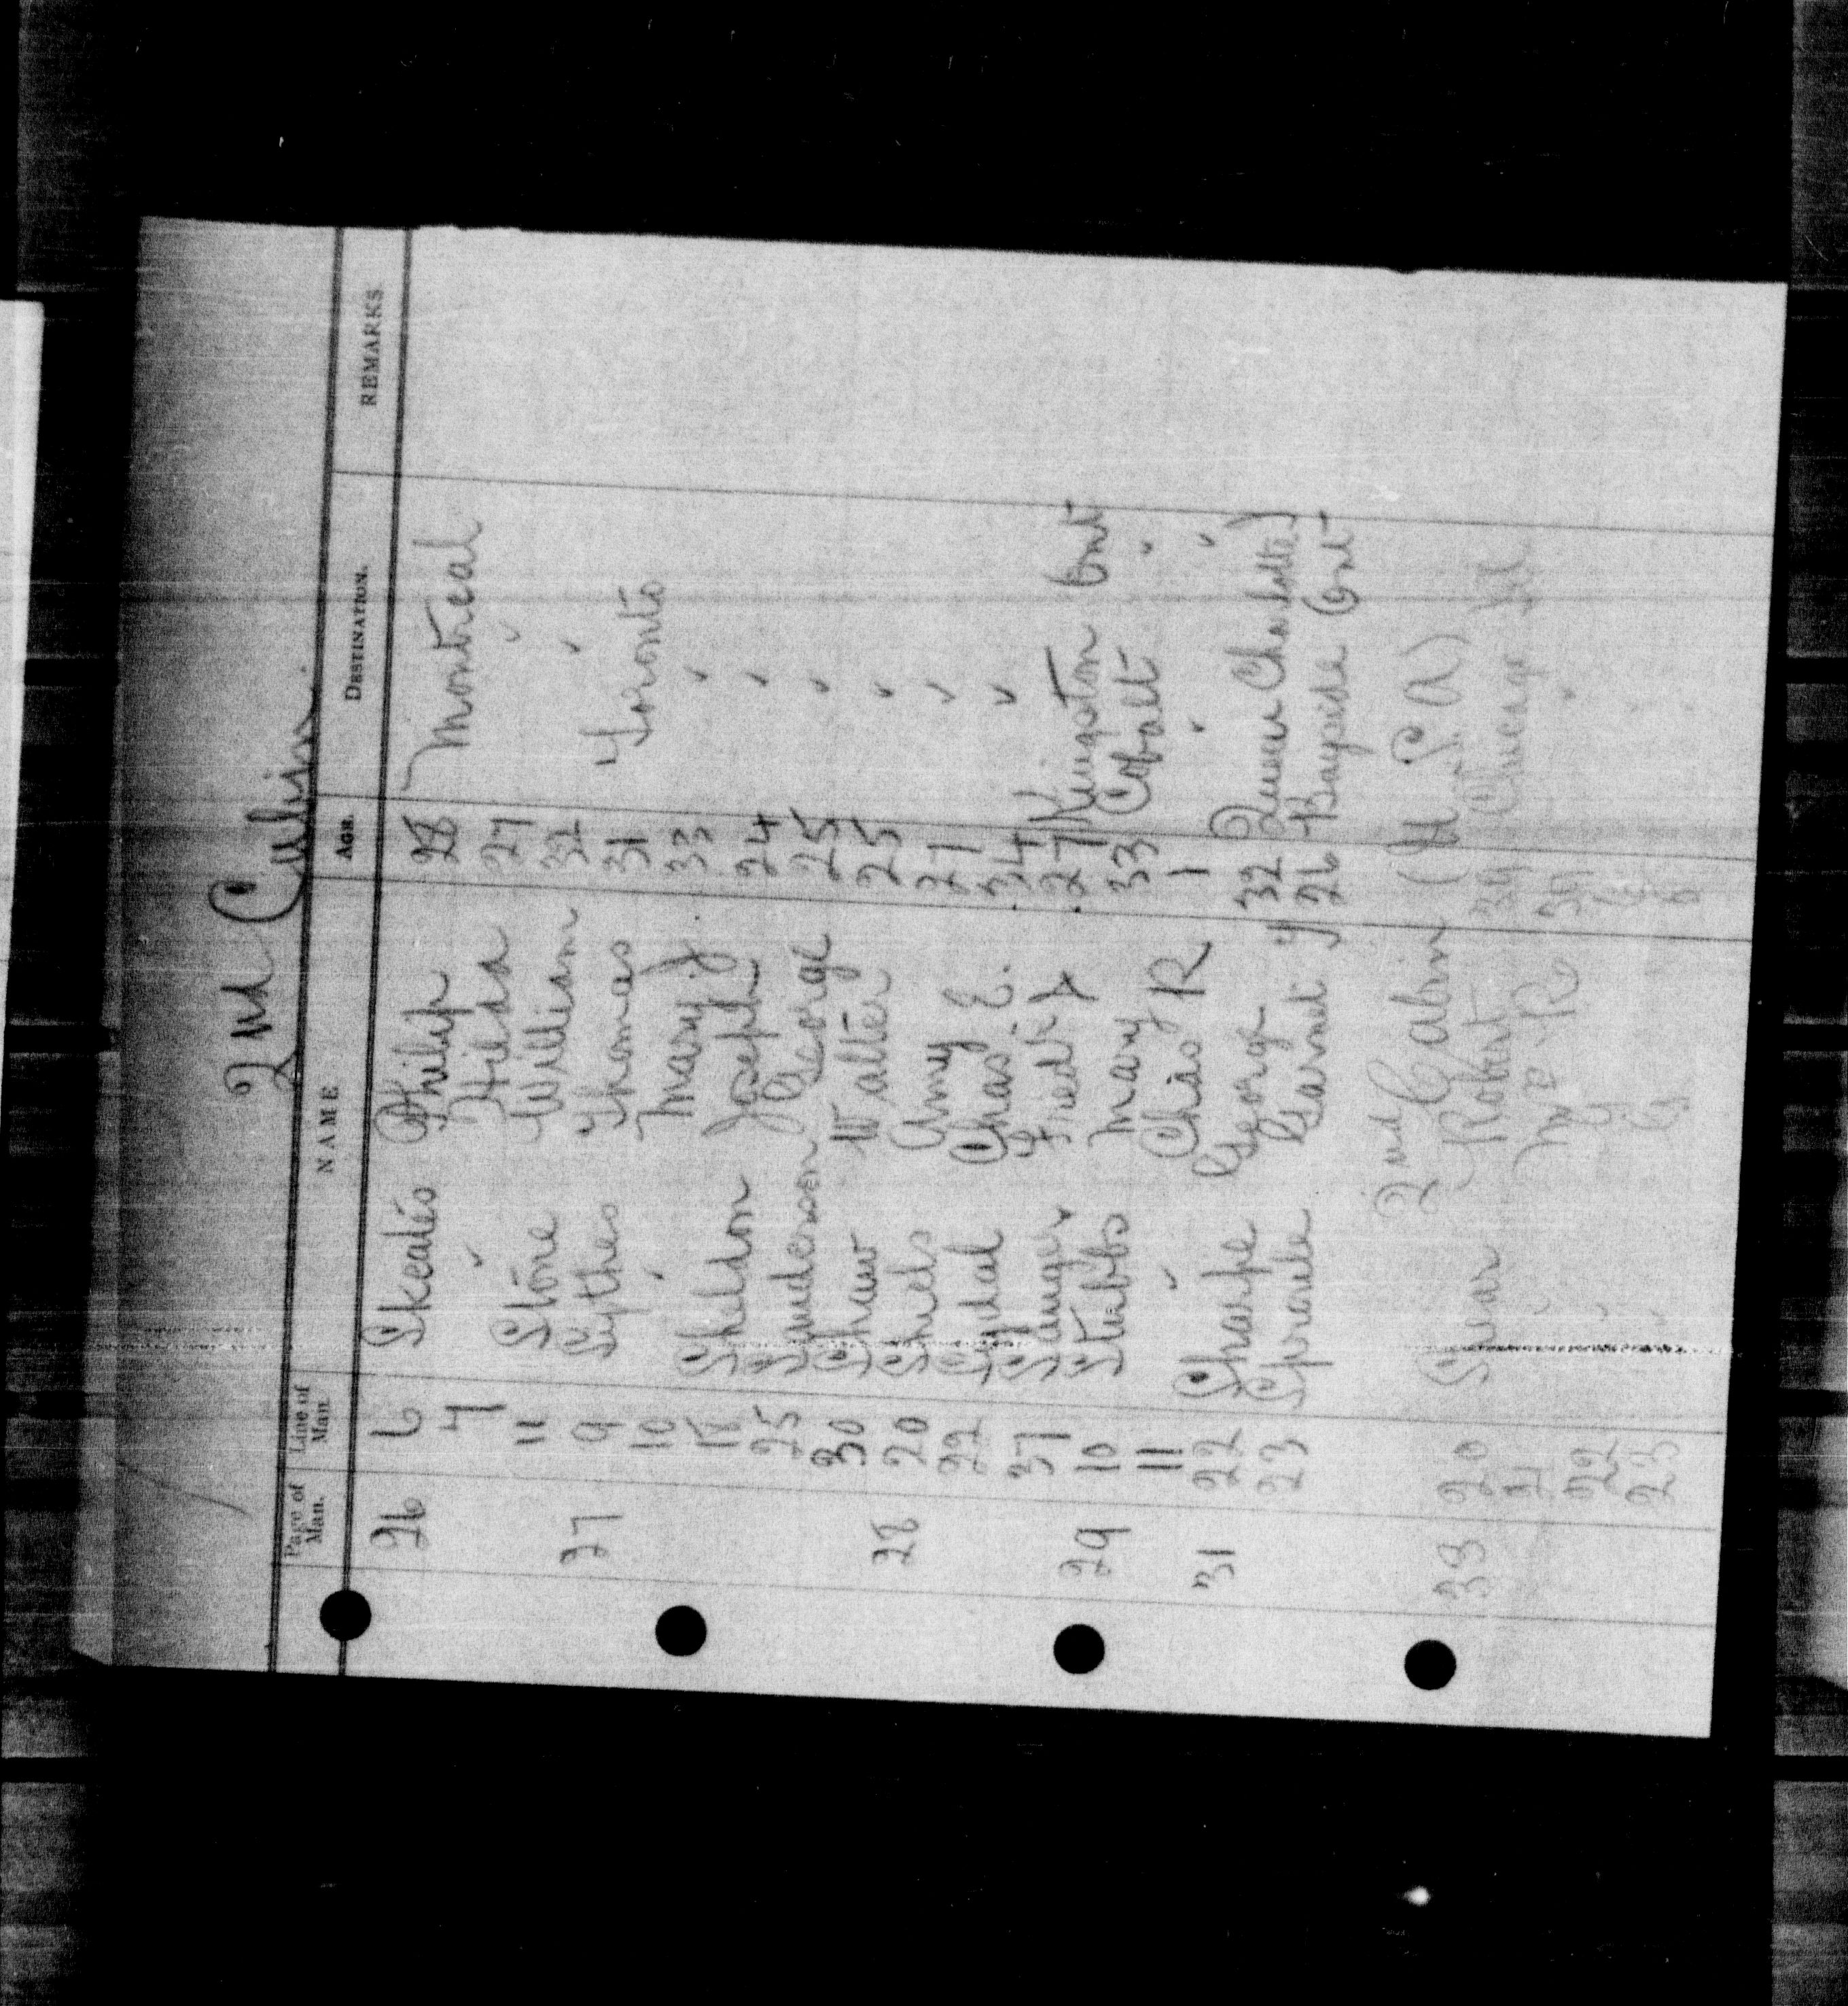 2nd Cabin
Page of Man. Line of Man. NAME AGE. DESTINATION. REMARKS
26 6 Skeates Philip 28 Montreal
7 " Hilda 27 "
11 Stone William 32 "
27 9 Sythes Thomas 31 Toronto
10 " Mary J 33 "
18 Sheldon Joseph 24 "
25 Saunderson George 25 "
30 Shaw Walter 25 "
28 20 Shiels Amy 27 "
22 Sydal Chas E. 34 "
37 Fred'k 27 Kingston Ont
29 10 Stubbs Mary 33 Cobalt "
11 " Chas R 1 " "
31 22 Sharpe George 32 Queen Charlotte I
23 Sproule Garnet 26 Bayside Ont
2nd Cabin (U.S.A)
33 20 Shear Robert 39 Chicago Ill
21 " Mrs R 39 "
22 "
23 "